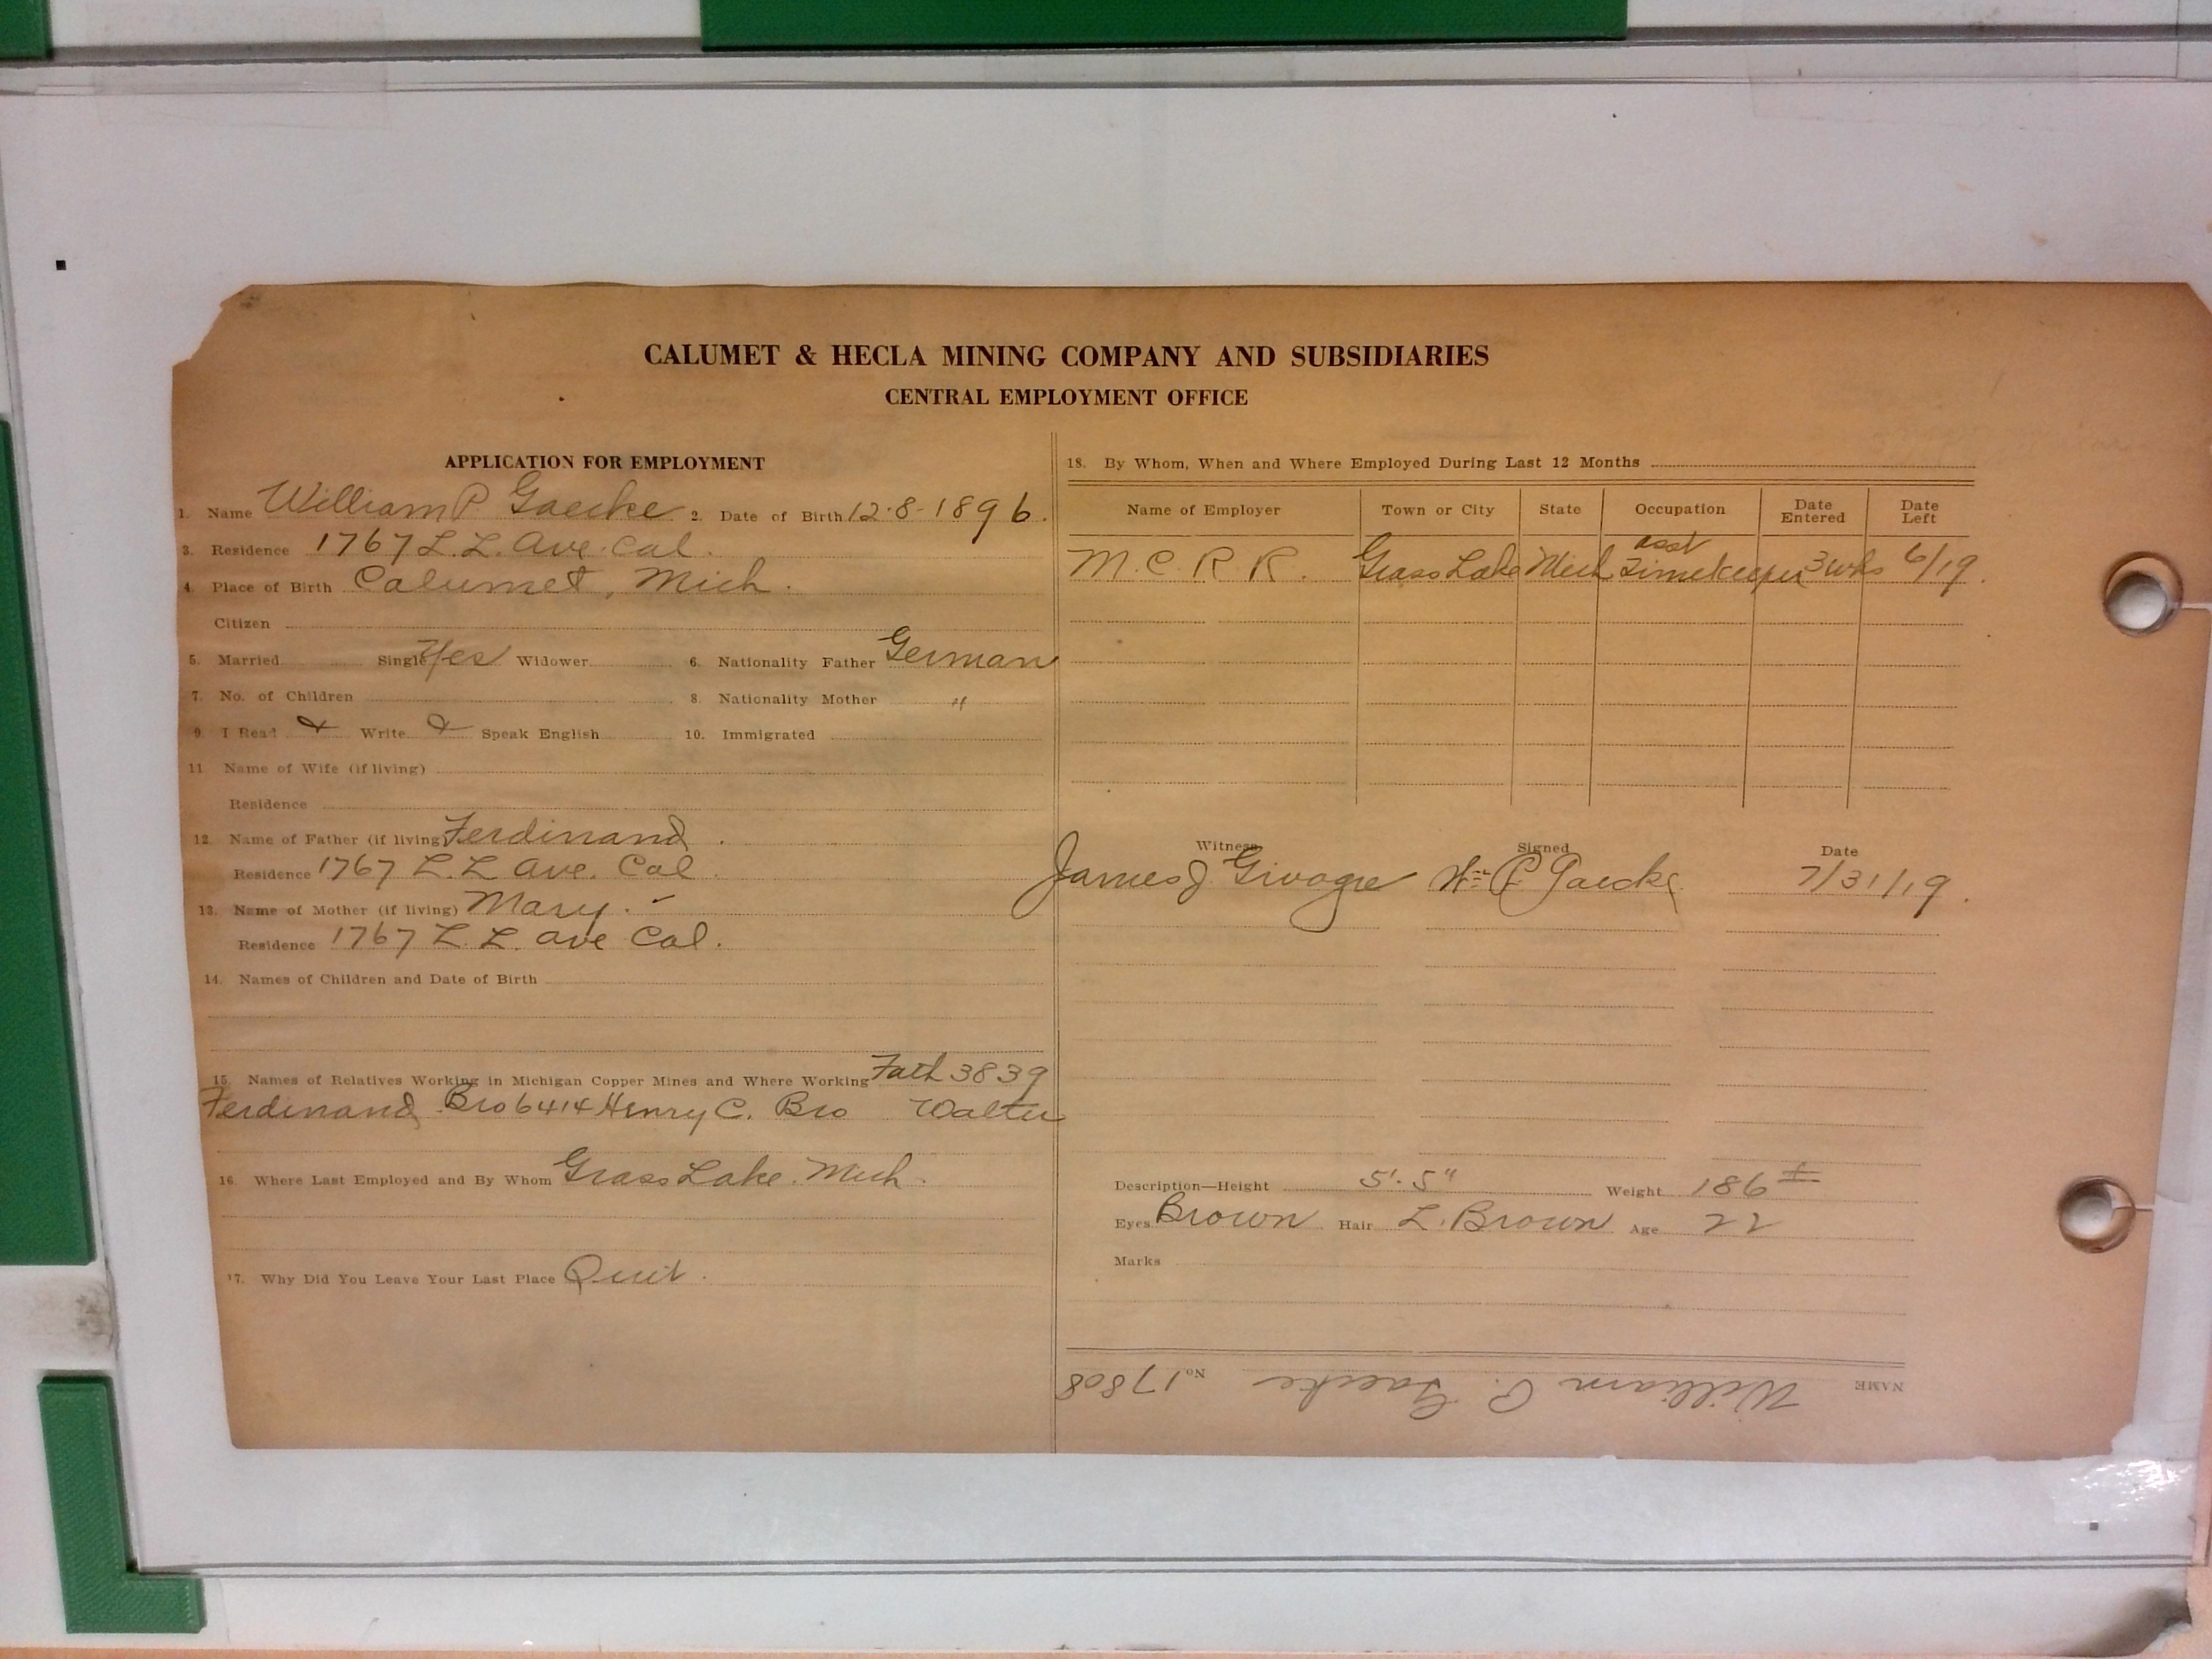 CALUMET & HECLA MINING COMPANY AND SUBSIDIARIES
CENTRAL EMPLOYMENT OFFICE
APPLICATION FOR EMPLOYMENT
1. Name William P Gaecke 2. Date of Birth 12-8-1896.
3. Residence 1767 L.L. Ave. Cal.
4. Place of Birth Calumet, Mich.
Citizen
5. Married Single Yes Widower 6. Nationality Father German
7. No. of Children 8. Nationality Mother "
9. I Read & Write & Speak English 10. Immigrated
11. Name of Wife (if living)
Residence
12. Name of Father (if living) Ferdinand.
Residence 1767 L.L Ave. Cal.
13. Name of Mother (if living) Mary. -
Residence 1767 L. L. ave Cal.
14. Names of Children and Date of Birth
15. Names of Relatives Working in Michigan Copper Mines and Where Working Fath 3839
Ferdinand Bro 6414 Henry C. Bro Walter
16. Where Last Employed and By Whom Grass Lake. Mich.
17. Why Did You Leave Your Last Place Quit.
18. By Whom, When and Where Employed During Last 12 Months
Name of Employer Town or City State Occupation Date Entered Date Left
M.C. R R. Grass Lake Mich asst Timekeeper 3 wks 6/19.
Witness Signed Date
James J. Wm P. Gaecke 7/31/19.
Description—Height 5'.5" Weight 186 #
Eyes Brown Hair L. Brown Age 22
Marks
NAME William P. Gaecke No. 17808